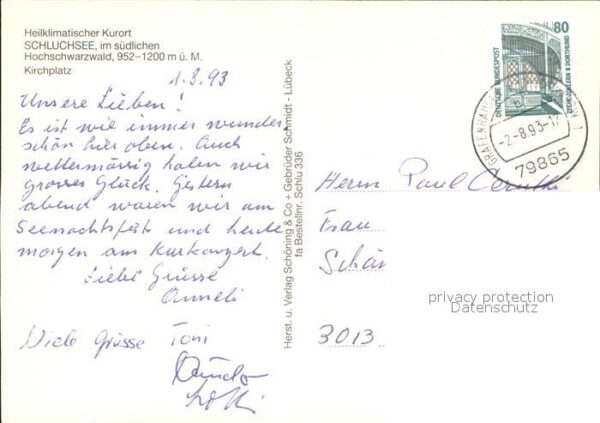 Heilklimatischer Kurort
SCHLUCHSEE, im südlichen
Hochschwarzwald, 952-1200 m ü. M.
Kirchplatz
1.8.93
Unsere Lieben!
Es ist wie immer wunder-
schön hier oben. Auch
wettermässig haben wir
grosses Glück. Gestern
abend waren wir am
Seenachtsfest und heute
morgen am Kurkonzert.
Liebe Grüsse
Anneli
Viele Grüsse Toni
Herst. u. Verlag Schöning & Co + Gebrüder Schmidt - Lübeck
fa Bestellnr. Schlu 336
80
DEUTSCHE BUNDESPOST
ZECHE ZOLLERN II DORTMUND
GRAFENHAUSEN
-2.-8.93-17
79865
Herrn Paul
Frau
Schär
3013
privacy protection
Datenschutz